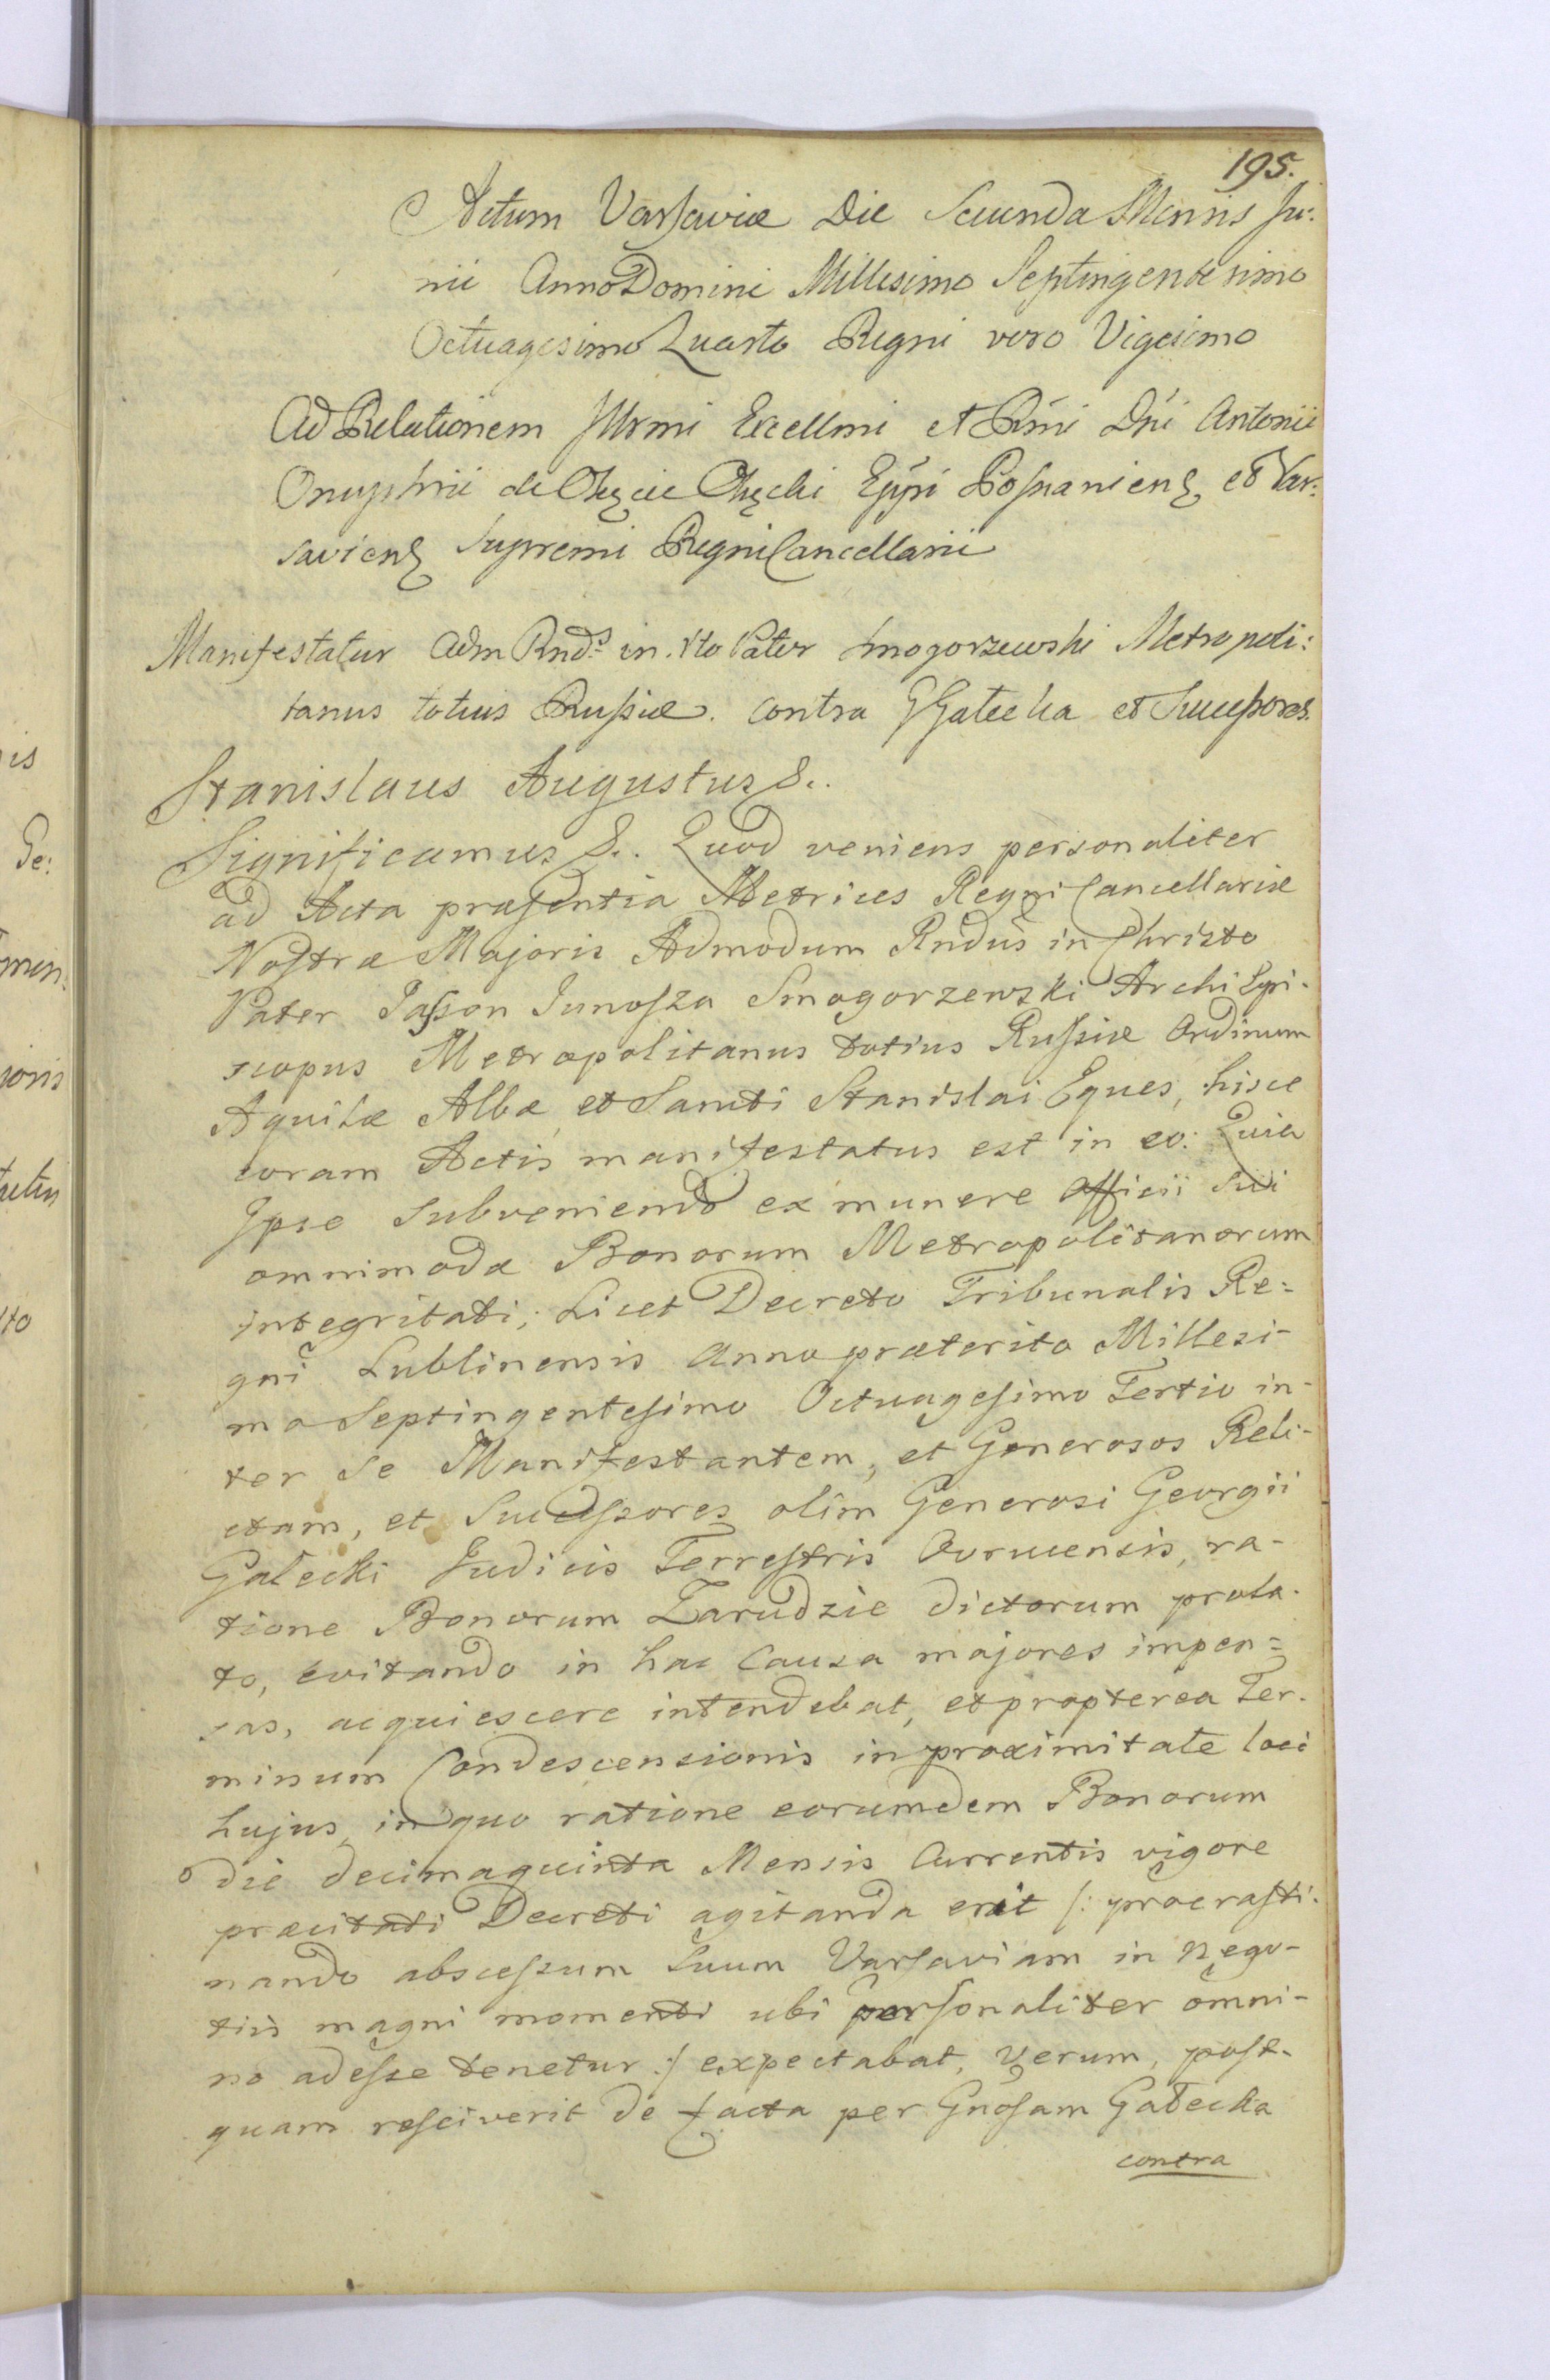 195.
Actum Varsaviæ Die Secunda Mensis Ju:
nii Anno Domini Millesimo Septingentesimo
Octuagesimo Quarto Regni vero Vigesimo
Ad Relationem Illrmi Excellmi et Rmi Dni Antonii
Onuphrii de Okęcie Okęcki Eppi Posnaniens et Var:
saviens Supremi Regni Cancellarii
Manifestatur Adm Rnds in Xto Pater Smogorzewski Metropoli:
tanus totius Russiæ. contra GGałecka et Successores.
Stanislaus Augustus &.
Significamus &. Quod veniens personaliter
ad Acta præsentia Metrices Regni Cancellariæ
Nostræ Majoris Admodum Rndus in Christo
Pater Jasson Junosza Smogorzewski Archi Epi-
scopus Metropolitanus totius Russiæ Ordinum
Aquilæ Albæ et Sancti Stanislai Eques, hisce
coram Actis manifestatus est in eo: Quia
Ipse Subveniendo ex munere Officii Sui
omnimodæ Bonorum Metropolitanorum
integritati; Licet Decreto Tribunalis Re=
gni Lublinensis Anno præterito Millesi-
mo Septingentesimo Octuagesimo Tertio in-
ter Se Manifestantem, et Generosos Reli-
ctam, et Successores olim Generosi Georgii
Gałecki Judicis Terrestris Ovrucensis, ra-
tione Bonorum Zarudzie dictorum prola-
to, evitando in hac Causa majores impen=
sas, acquiescere intendebat, et propterea Ter-
minum Condescensionis in proximitate loci
hujus, in quo ratione eorumdem Bonorum
die decima quinta Mensis Currentis vigore
præcitati Decreti agitanda erit /: procrasti-
nando abscessum Suum Varsaviam in nego-
tiis magni momenti ubi personaliter omni-
no adesse tenetur :/ expectabat, Verum, post-
quam resciverit de facta per Gnosam Gałecka
contra
is
Ge: